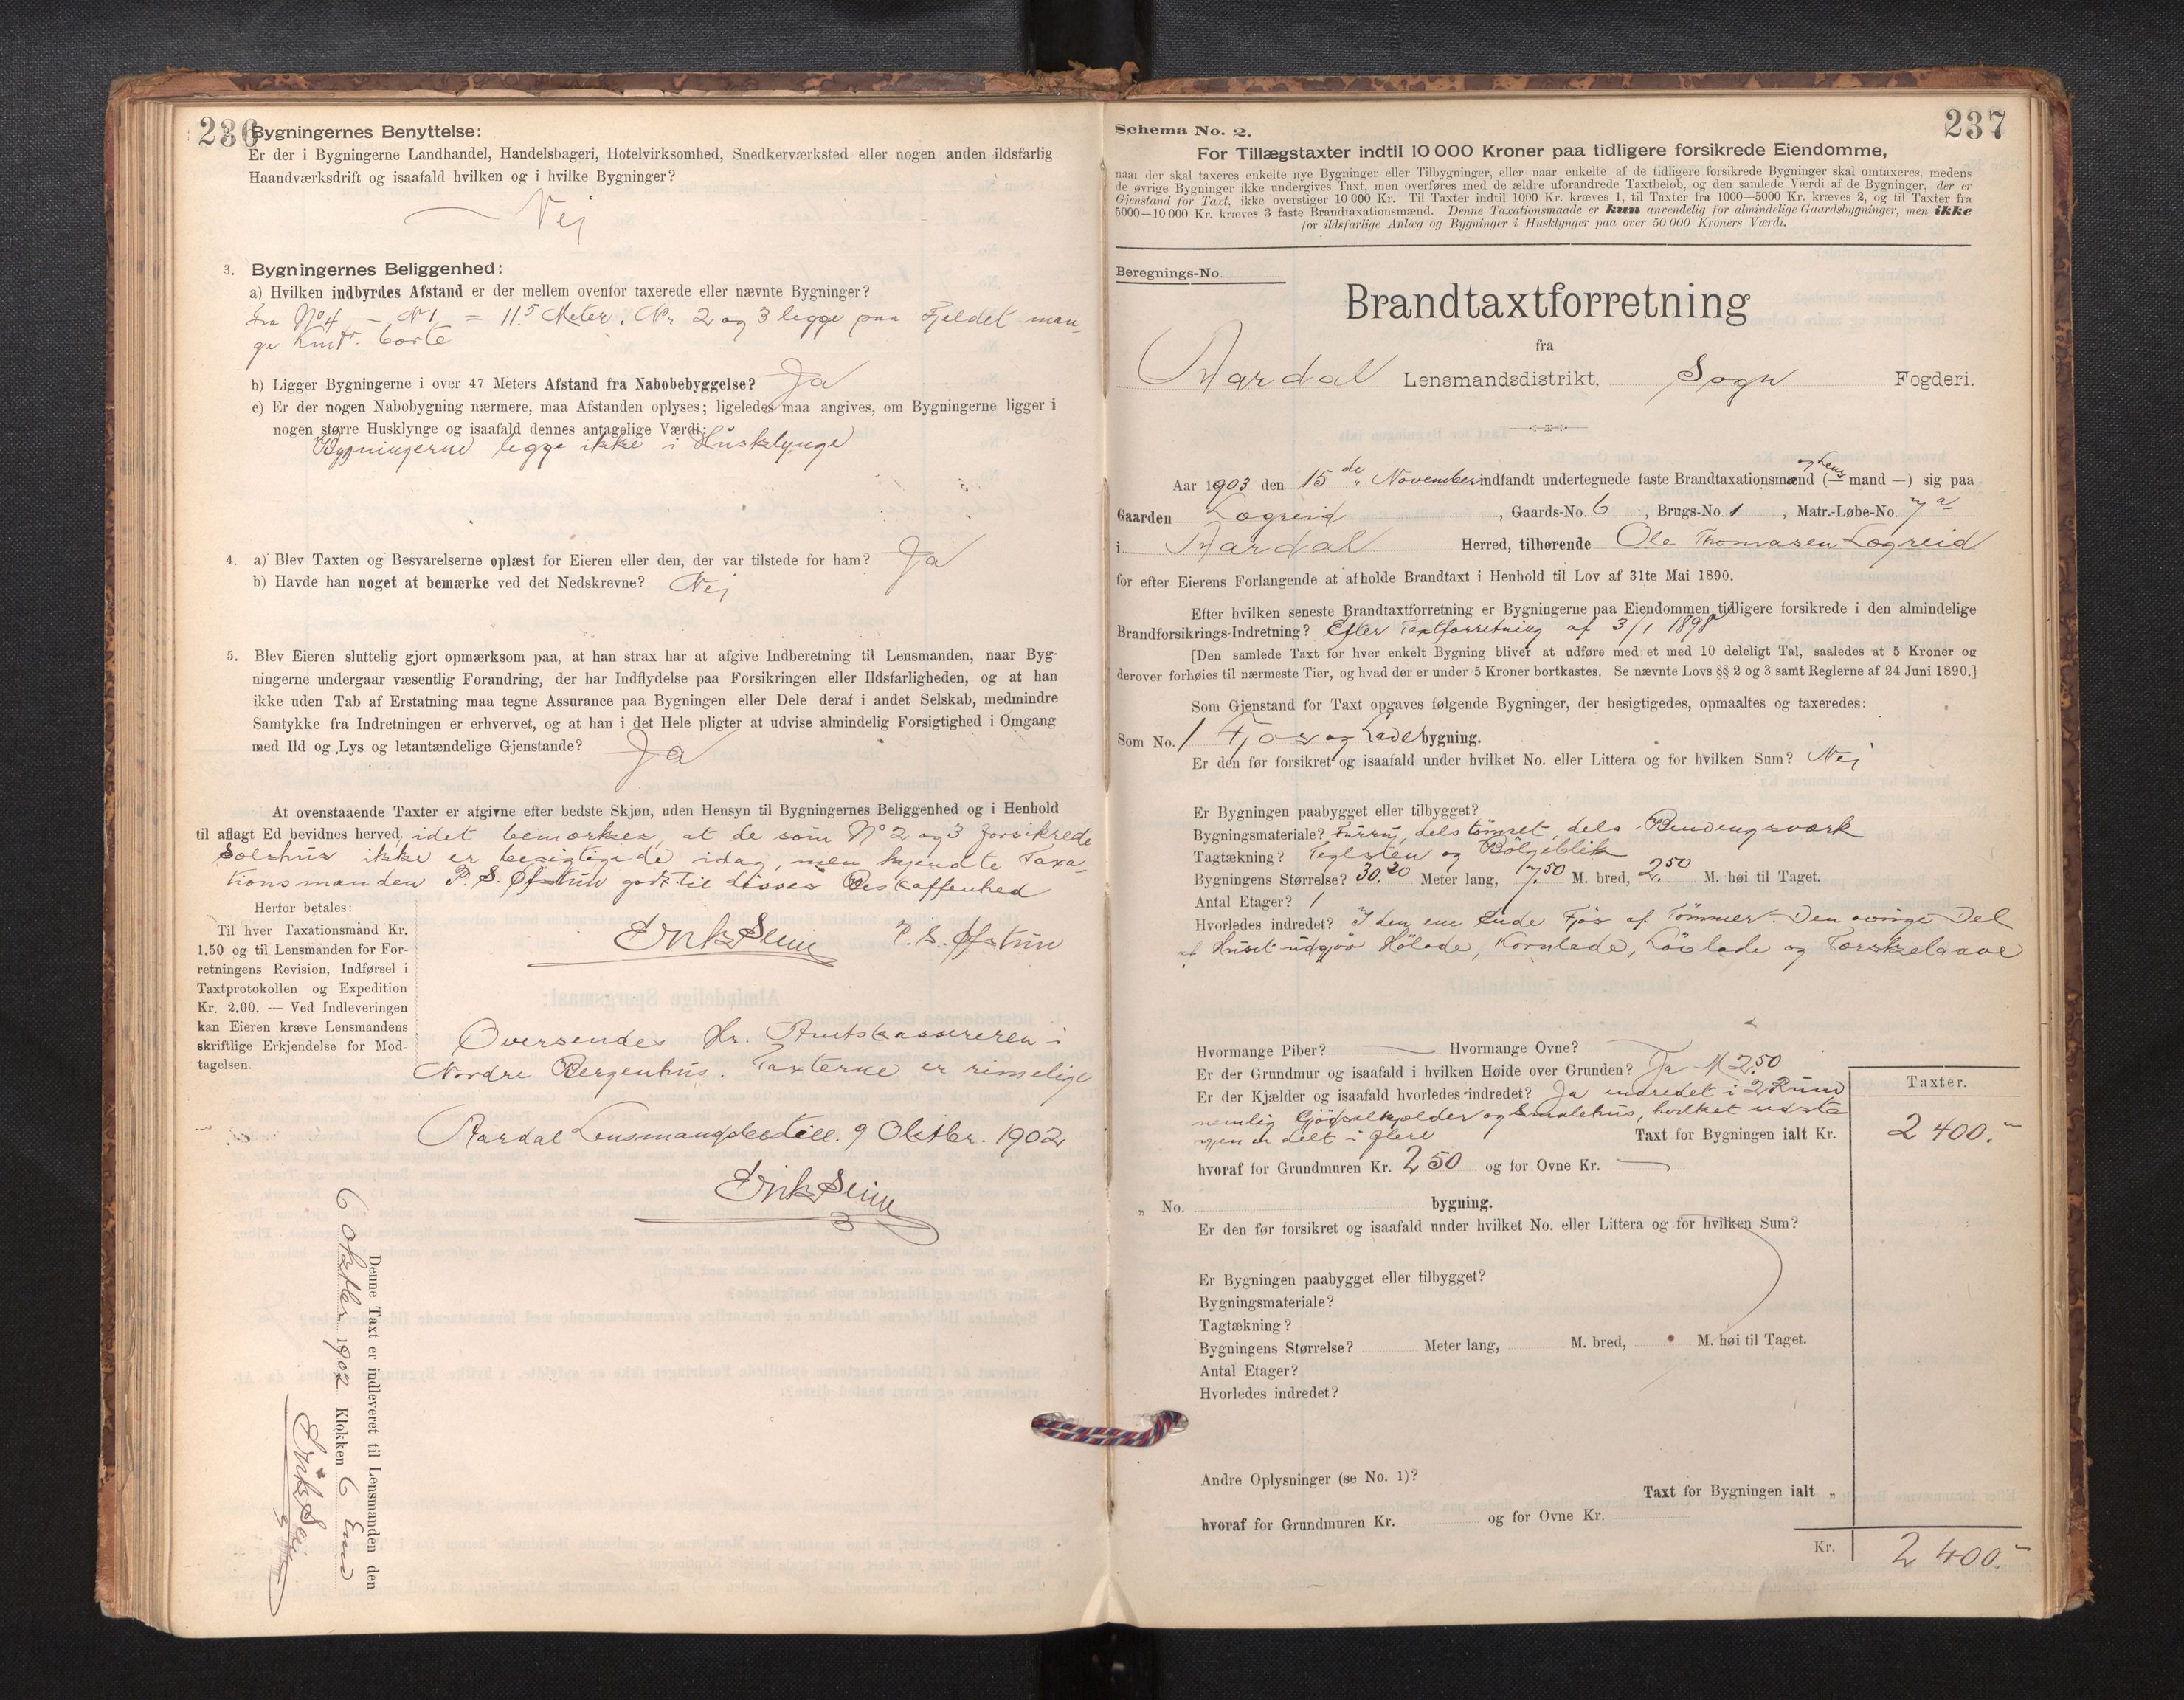 236
Bygningernes Benyttelse:
Er der i Bygningerne Landhandel, Handelsbageri, Hotelvirksomhed, Snedkerværksted eller nogen anden ildsfarlig
Haandværksdrift og isaafald hvilken og i hvilke Bygninger?
Nej
3. Bygningernes Beliggenhed:
a) Hvilken indbyrdes Afstand er der mellem ovenfor taxerede eller nævnte Bygninger?
Fra No 4 – N 1 = 11.5 Meter. Nr. 2 og 3 legge paa Fjeldet man-
ge Kmtr. borte
b) Ligger Bygningerne i over 47 Meters Afstand fra Nabobebyggelse? Ja
c) Er der nogen Nabobygning nærmere, maa Afstanden oplyses; ligeledes maa angives, om Bygningerne ligger i
nogen større Husklynge og isaafald dennes antagelige Værdi:
Bygningerne legge ikke i Husklynge
4. a) Blev Taxten og Besvarelserne oplæst for Eieren eller den, der var tilstede for ham? Ja
b) Havde han noget at bemærke ved det Nedskrevne? Nej
5. Blev Eieren sluttelig gjort opmærksom paa, at han strax har at afgive Indberetning til Lensmanden, naar Byg-
ningerne undergaar væsentlig Forandring, der har Indflydelse paa Forsikringen eller Ildsfarligheden, og at han
ikke uden Tab af Erstatning maa tegne Assurance paa Bygningen eller Dele deraf i andet Selskab, medmindre
Samtykke fra Indretningen er erhvervet, og at han i det Hele pligter at udvise almindelig Forsigtighed i Omgang
med Ild og Lys og letantændelige Gjenstande? Ja
At ovenstaaende Taxter er afgivne efter bedste Skjøn, uden Hensyn til Bygningernes Beliggenhed og i Henhold
til aflagt Ed bevidnes herved, idet bemærkes at de som No 2 og 3 forsikrede
Sælshus ikke er besigtigede idag, men kjendte Taxa-
tionsmanden P. S. Øfstun godt til disses Beskaffenhed
Herfor betales:
Til hver Taxationsmand Kr.
1.50 og til Lensmanden for For-
retningens Revision, Indførsel i
Taxtprotokollen og Expedition
Kr. 2.00. — Ved Indleveringen
kan Eieren kræve Lensmandens
skriftlige Erkjendelse for Mod-
tagelsen.
Erik Seim P. S. Øfstun
Oversendes Hr. Amtskassereren i
Nordre Bergenhus. Taxterne er rimelige
Aardal Lensmandsbestill. 9 Oktbr. 1902
Erik Seim
Denne Taxt er indleveret til Lensmanden den
6 Oktbr. 1902 Klokken 6 Em
Erik Seim
237
Schema No. 2.
For Tillægstaxter indtil 10 000 Kroner paa tidligere forsikrede Eiendomme,
naar der skal taxeres enkelte nye Bygninger eller Tilbygninger, eller naar enkelte af de tidligere forsikrede Bygninger skal omtaxeres, medens
de øvrige Bygninger ikke undergives Taxt, men overføres med de ældre uforandrede Taxtbeløb, og den samlede Værdi af de Bygninger, der er
Gjenstand for Taxt, ikke overstiger 10 000 Kr. Til Taxter indtil 1000 Kr. kræves 1, til Taxter fra 1000—5000 Kr. kræves 2, og til Taxter fra
5000—10 000 Kr. kræves 3 faste Brandtaxationsmænd. Denne Taxationsmaade er kun anvendelig for almindelige Gaardsbygninger, men ikke
for ildsfarlige Anlæg og Bygninger i Husklynger paa over 50 000 Kroners Værdi.
Beregnings-No.
Brandtaxtforretning
fra
Aardal Lensmandsdistrikt, Sogn Fogderi.
og Lens
Aar 1903 den 15 de November indfandt undertegnede faste Brandtaxationsmænd (— mand —) sig paa
Gaarden Lægreid, Gaards-No. 6, Brugs-No 1, Matr.-Løbe-No. 7 a
i Aardal Herred, tilhørende Ole Thomasen Lægreid
for efter Eierens Forlangende at afholde Brandtaxt i Henhold til Lov af 31te Mai 1890.
Efter hvilken seneste Brandtaxtforretning er Bygningerne paa Eiendommen tidligere forsikrede i den almindelige
Brandforsikrings-Indretning? Efter Taxtforretning af 3/1 1898
[Den samlede Taxt for hver enkelt Bygning bliver at udføre med et med 10 deleligt Tal, saaledes at 5 Kroner og
derover forhøies til nærmeste Tier, og hvad der er under 5 Kroner bortkastes. Se nævnte Lovs §§ 2 og 3 samt Reglerne af 24 Juni 1890.]
Som Gjenstand for Taxt opgaves følgende Bygninger, der besigtigedes, opmaaltes og taxeredes:
Som No. 1 Fjøs og Ladebygning.
Er den før forsikret og isaafald under hvilket No. eller Littera og for hvilken Sum? Nej
Er Bygningen paabygget eller tilbygget?
Bygningsmateriale? Furru, dels tømret, dels Bendingsværk
Tagtækning? Teglsten og Bølgeblik
Bygningens Størrelse? 30.20 Meter lang, 7.50 M. bred, 2.50 M. høi til Taget.
Antal Etager? 1
Hvorledes indredet? I den ene Ende Fjøs af Tømmer. Den øvrige Del
af Huset udgjør Hølade, Kornlade, Løvlade og Tærskelaave
Hvormange Piber? — Hvormange Ovne? —
Er der Grundmur og isaafald i hvilken Høide over Grunden? Ja M 2.50
Er der Kjælder og isaafald hvorledes indredet? Ja indredet i 2 Rum
nemlig Gjødselkjelder og Smalehus, hvilket sidste
igjen er delt i flere
Taxter.
Taxt for Bygningen ialt Kr. 2 400.
hvoraf for Grundmuren Kr. 250 og for Ovne Kr. —
„ No. bygning.
Er den før forsikret og isaafald under hvilket No. eller Littera og for hvilken Sum?
Er Bygningen paabygget eller tilbygget?
Bygningsmateriale?
Tagtækning?
Bygningens Størrelse? Meter lang, M. bred, M. høi til Taget.
Antal Etager?
Hvorledes indredet?
Andre Oplysninger (se No. 1)?
Taxt for Bygningen ialt „
hvoraf for Grundmuren Kr. og for Ovne Kr.
Kr. 2 400.